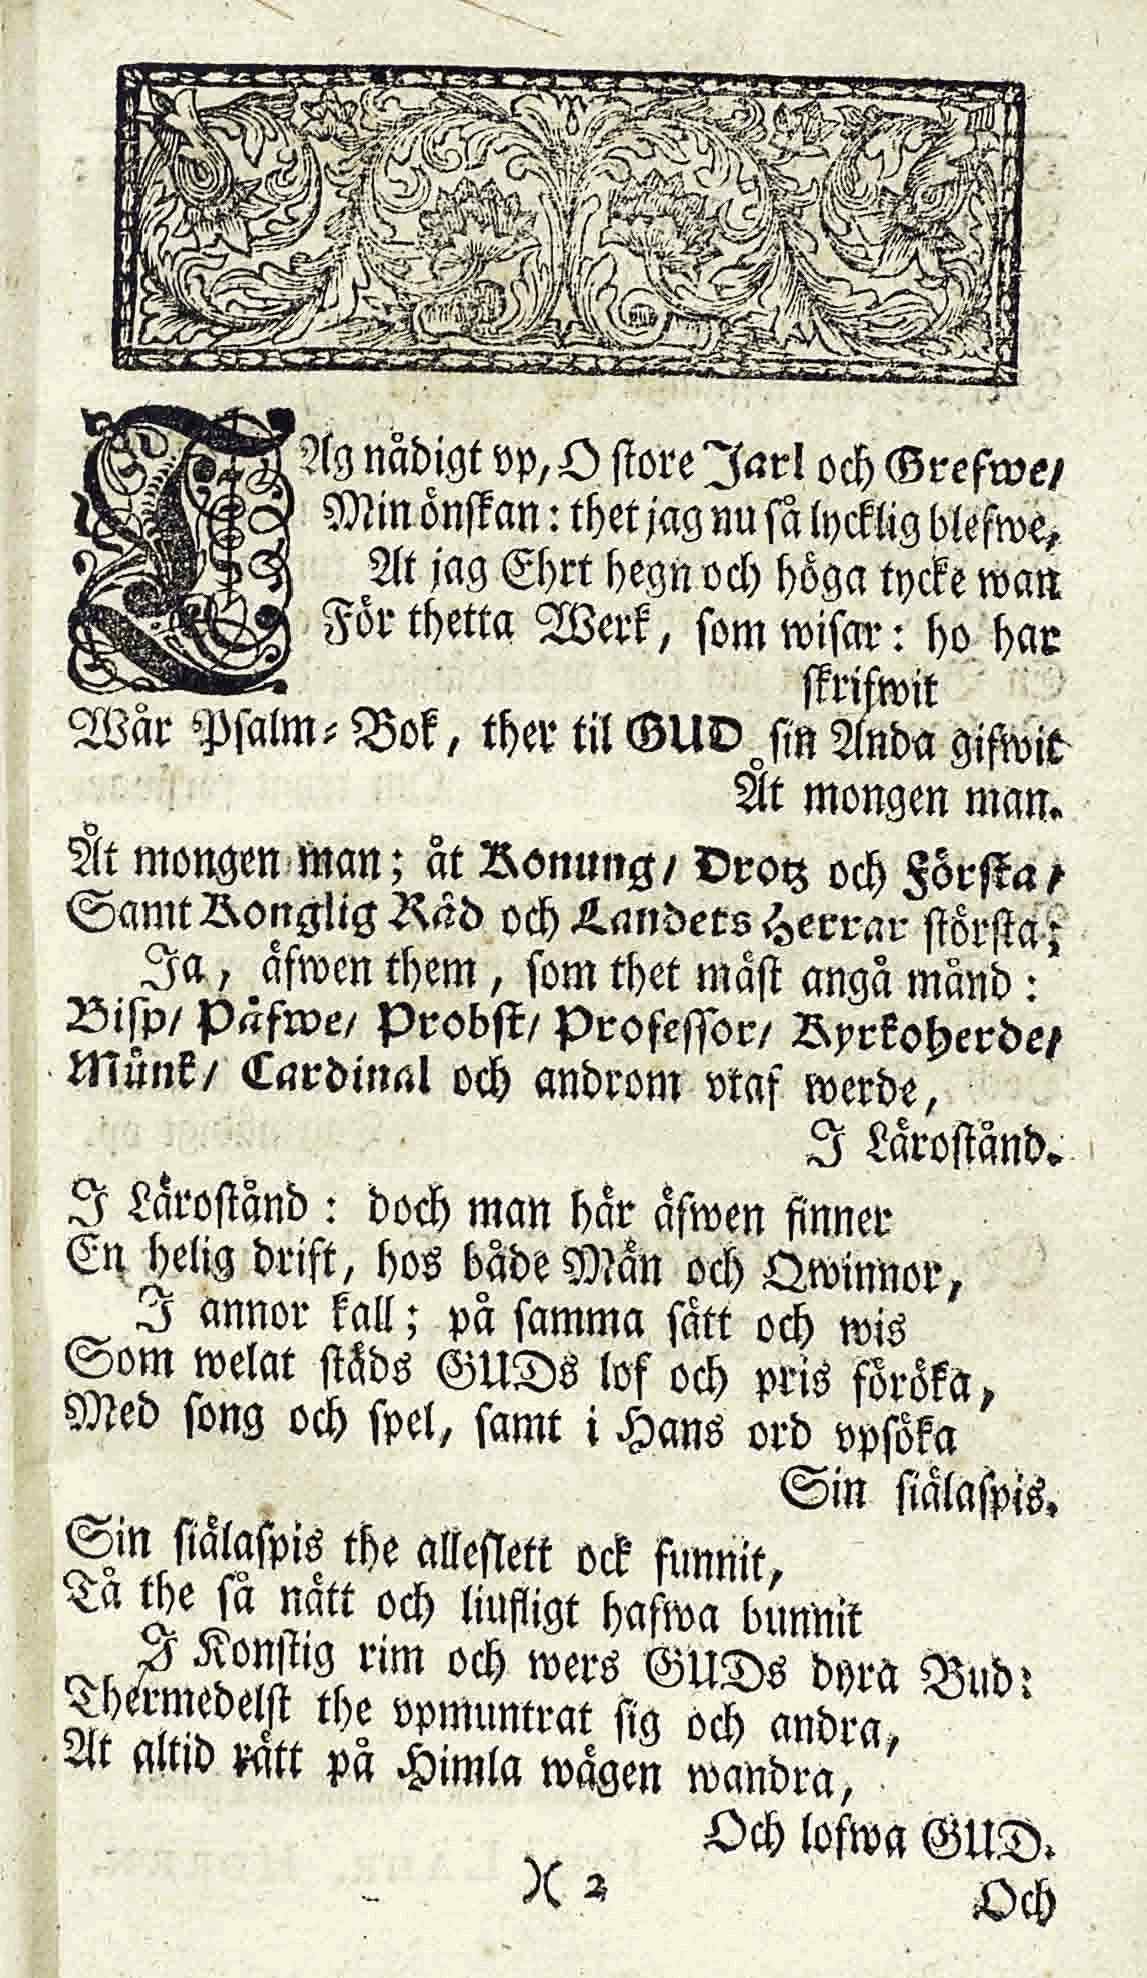 TAg nådigt vp, O store Jarl och Grefwe/
Min önskan: thet jag nu så lycklig blefwe,
At jag Ehrt hegn och höga tycke wan
För thetta Werk, som wisar: ho har
skrifwit
Wår Psalm-Bok, ther til GUD sin Anda gifwit
Åt mongen man.
Åt mongen man; åt Konung/ Drotz och Förska/
Samt Konglig Råd och Landets Herrar största;
Ja, äfwen them, som thet mäst angå månd:
Bisp/ Påfwe/ Probst/ Professor/ Kyrkoherde/
Münk/ Cardinal och androm vtaf werde,
I Lärostånd.
I Lärostånd: doch man här äfwen finner
En helig drift, hos både Män och Qwinnor,
I annor kall; på samma sätt och wis
Som welat städs GUDs lof och pris föröka,
Med song och spel, samt i Hans ord vpsöka
Sin siälaspis.
Sin siälaspis the alleslett ock funnit,
Tå the så nätt och liufligt hafwa bunnit
I Konstig rim och wers GUDs dyra Bud:
Thermedelst the vpmuntrat sig och andra,
At altid rätt på Himla wägen wandra,
Och lofwa GUD.
)( 2
Och